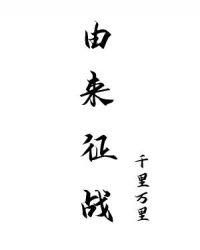 由来征战
千里万里